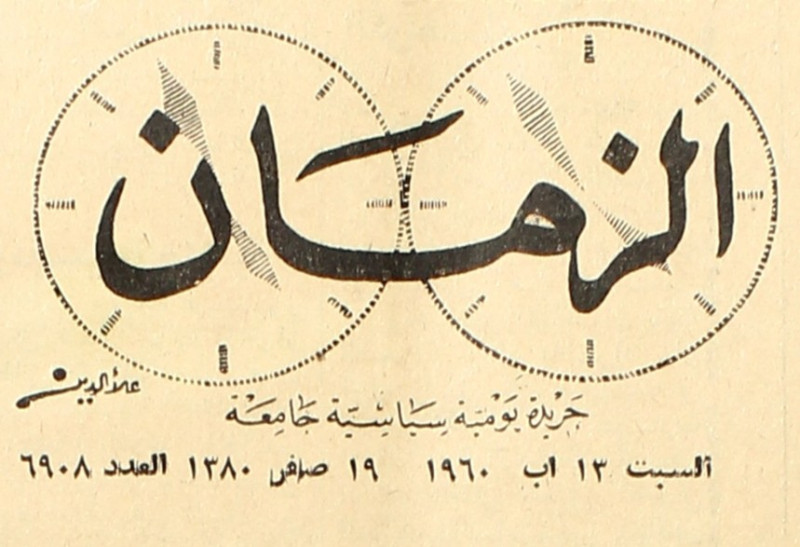 الزمان
علاءالدين
جَريدة يَوْميّة سِيَاسِيّة جَامِعَة
السبت ١٣ اب ١٩٦٠ ١٩ صفر ١٣٨٠ العدد ٦٩٠٨